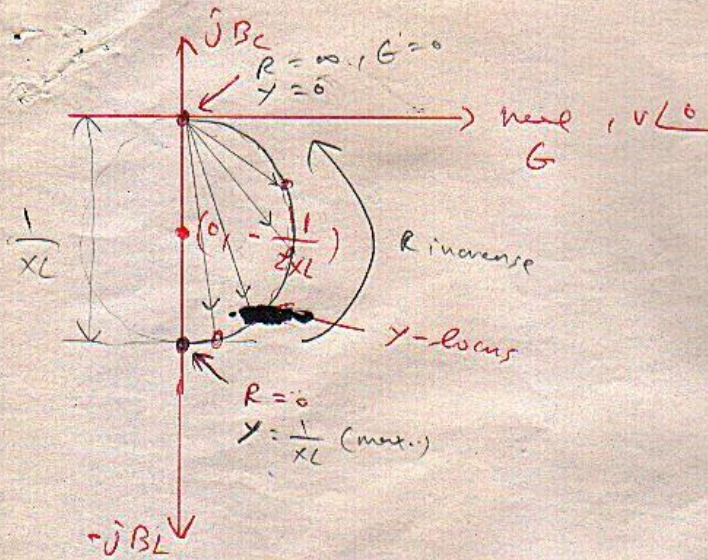 jBc
R = ∞, G = 0
Y = 0
real, V∠0
G
1/XL
(0, -1/2XL)
R increase
Y-locus
R = 0
Y = 1/XL (max.)
-jBL